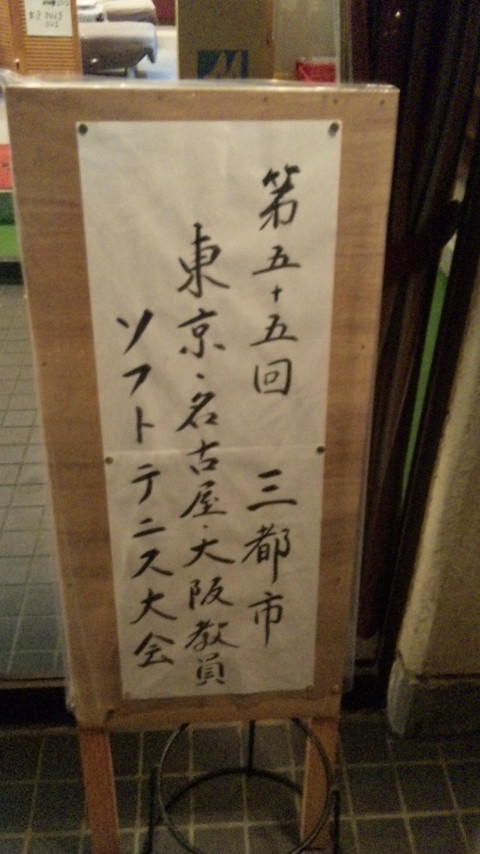 第五十五回 三都市
東京・名古屋・大阪教員
ソフトテニス大会